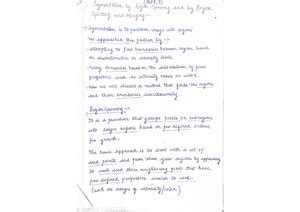 Segmentation by Region Growing and by Region
Splitting and Merging -
→ Segmentation is to partition image into regions
→ We approached this problem by -
- attempting to find boundaries between regions based
on discontinuities in intensity levels
- using threshold based on the distribution of pixel
properties such as intensity values or color.
→ Now we will discuss a method that finds the regions
and their boundaries simultaneously.
Region Growing
It is a procedure that groups pixels or subregions
into larger regions based on pre-defined criteria
for growth.
The basic approach is to start with a set of
seed points and from these grow regions by appending
to each seed those neighboring pixels that have
pre defined properties similar to seed.
(such as ranges of intensity/color)